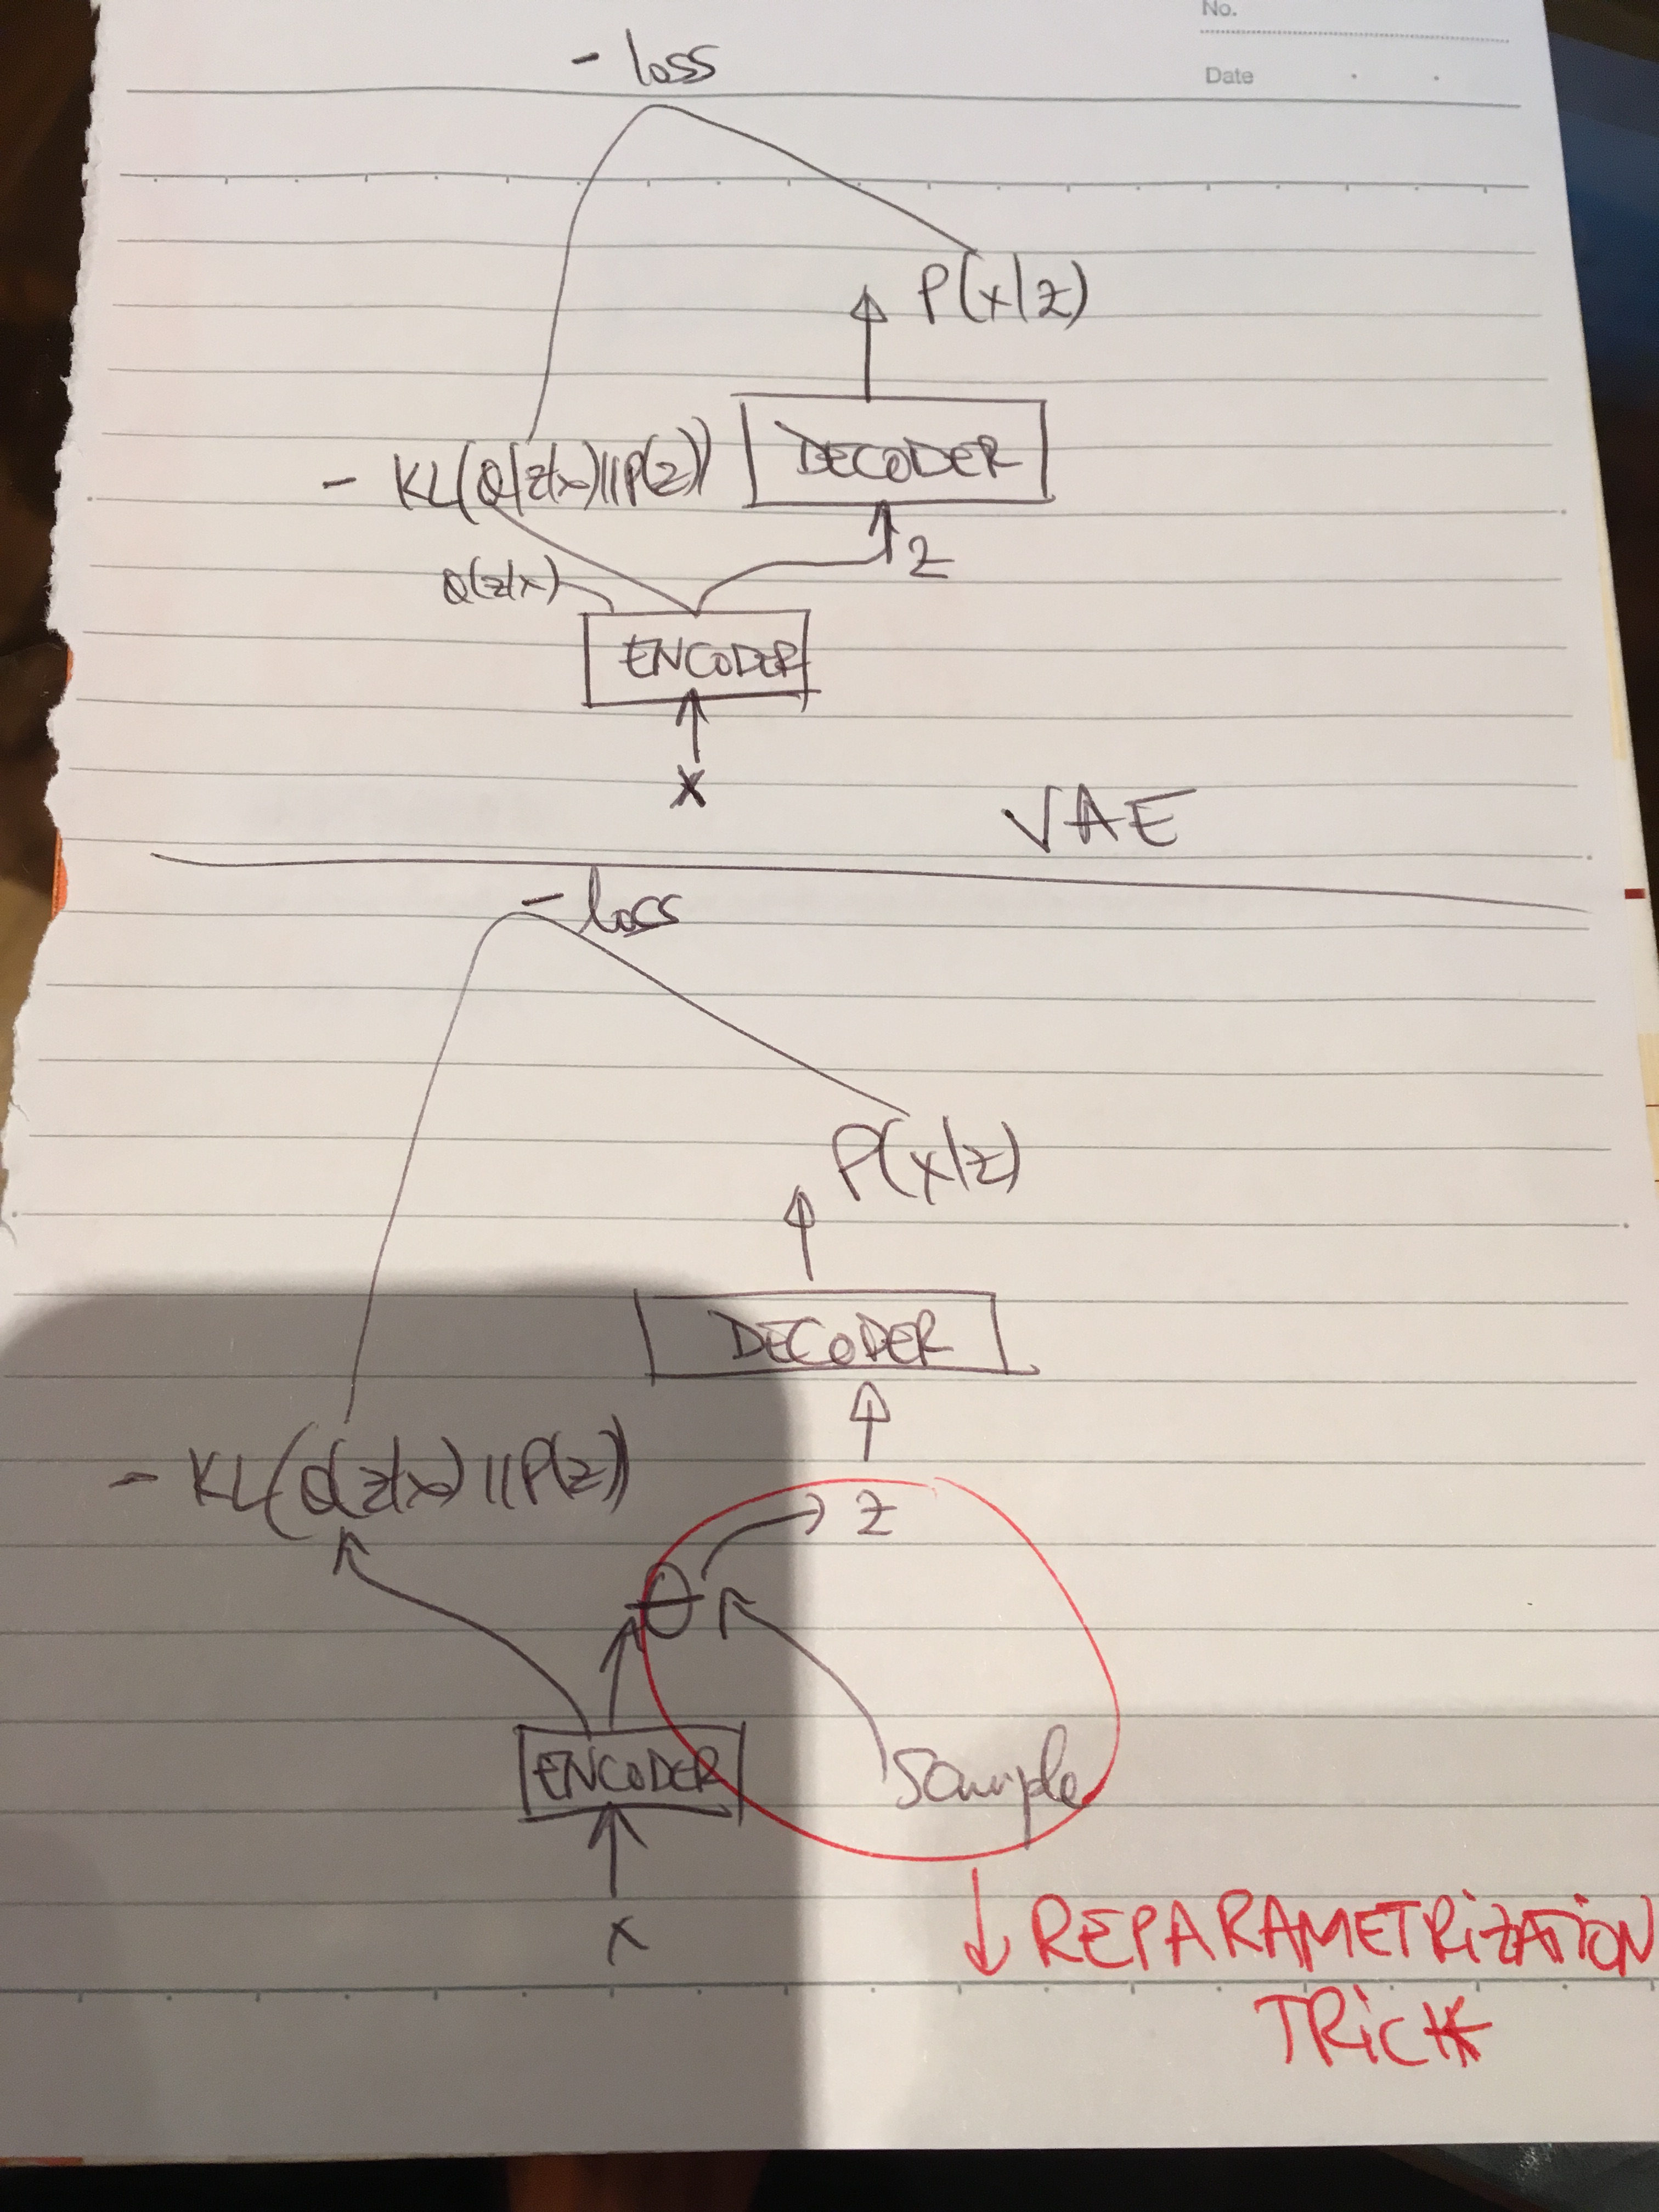 No.
Date
- loss
P(x|z)
DECODER
- KL(Q(z|x)||P(z))
z
Q(z|x)
ENCODER
x
VAE
- loss
P(x|z)
DECODER
- KL(Q(z|x)||P(z))
z
ENCODER
Sample
x
↓ REPARAMETRiZATiON
TRiCK